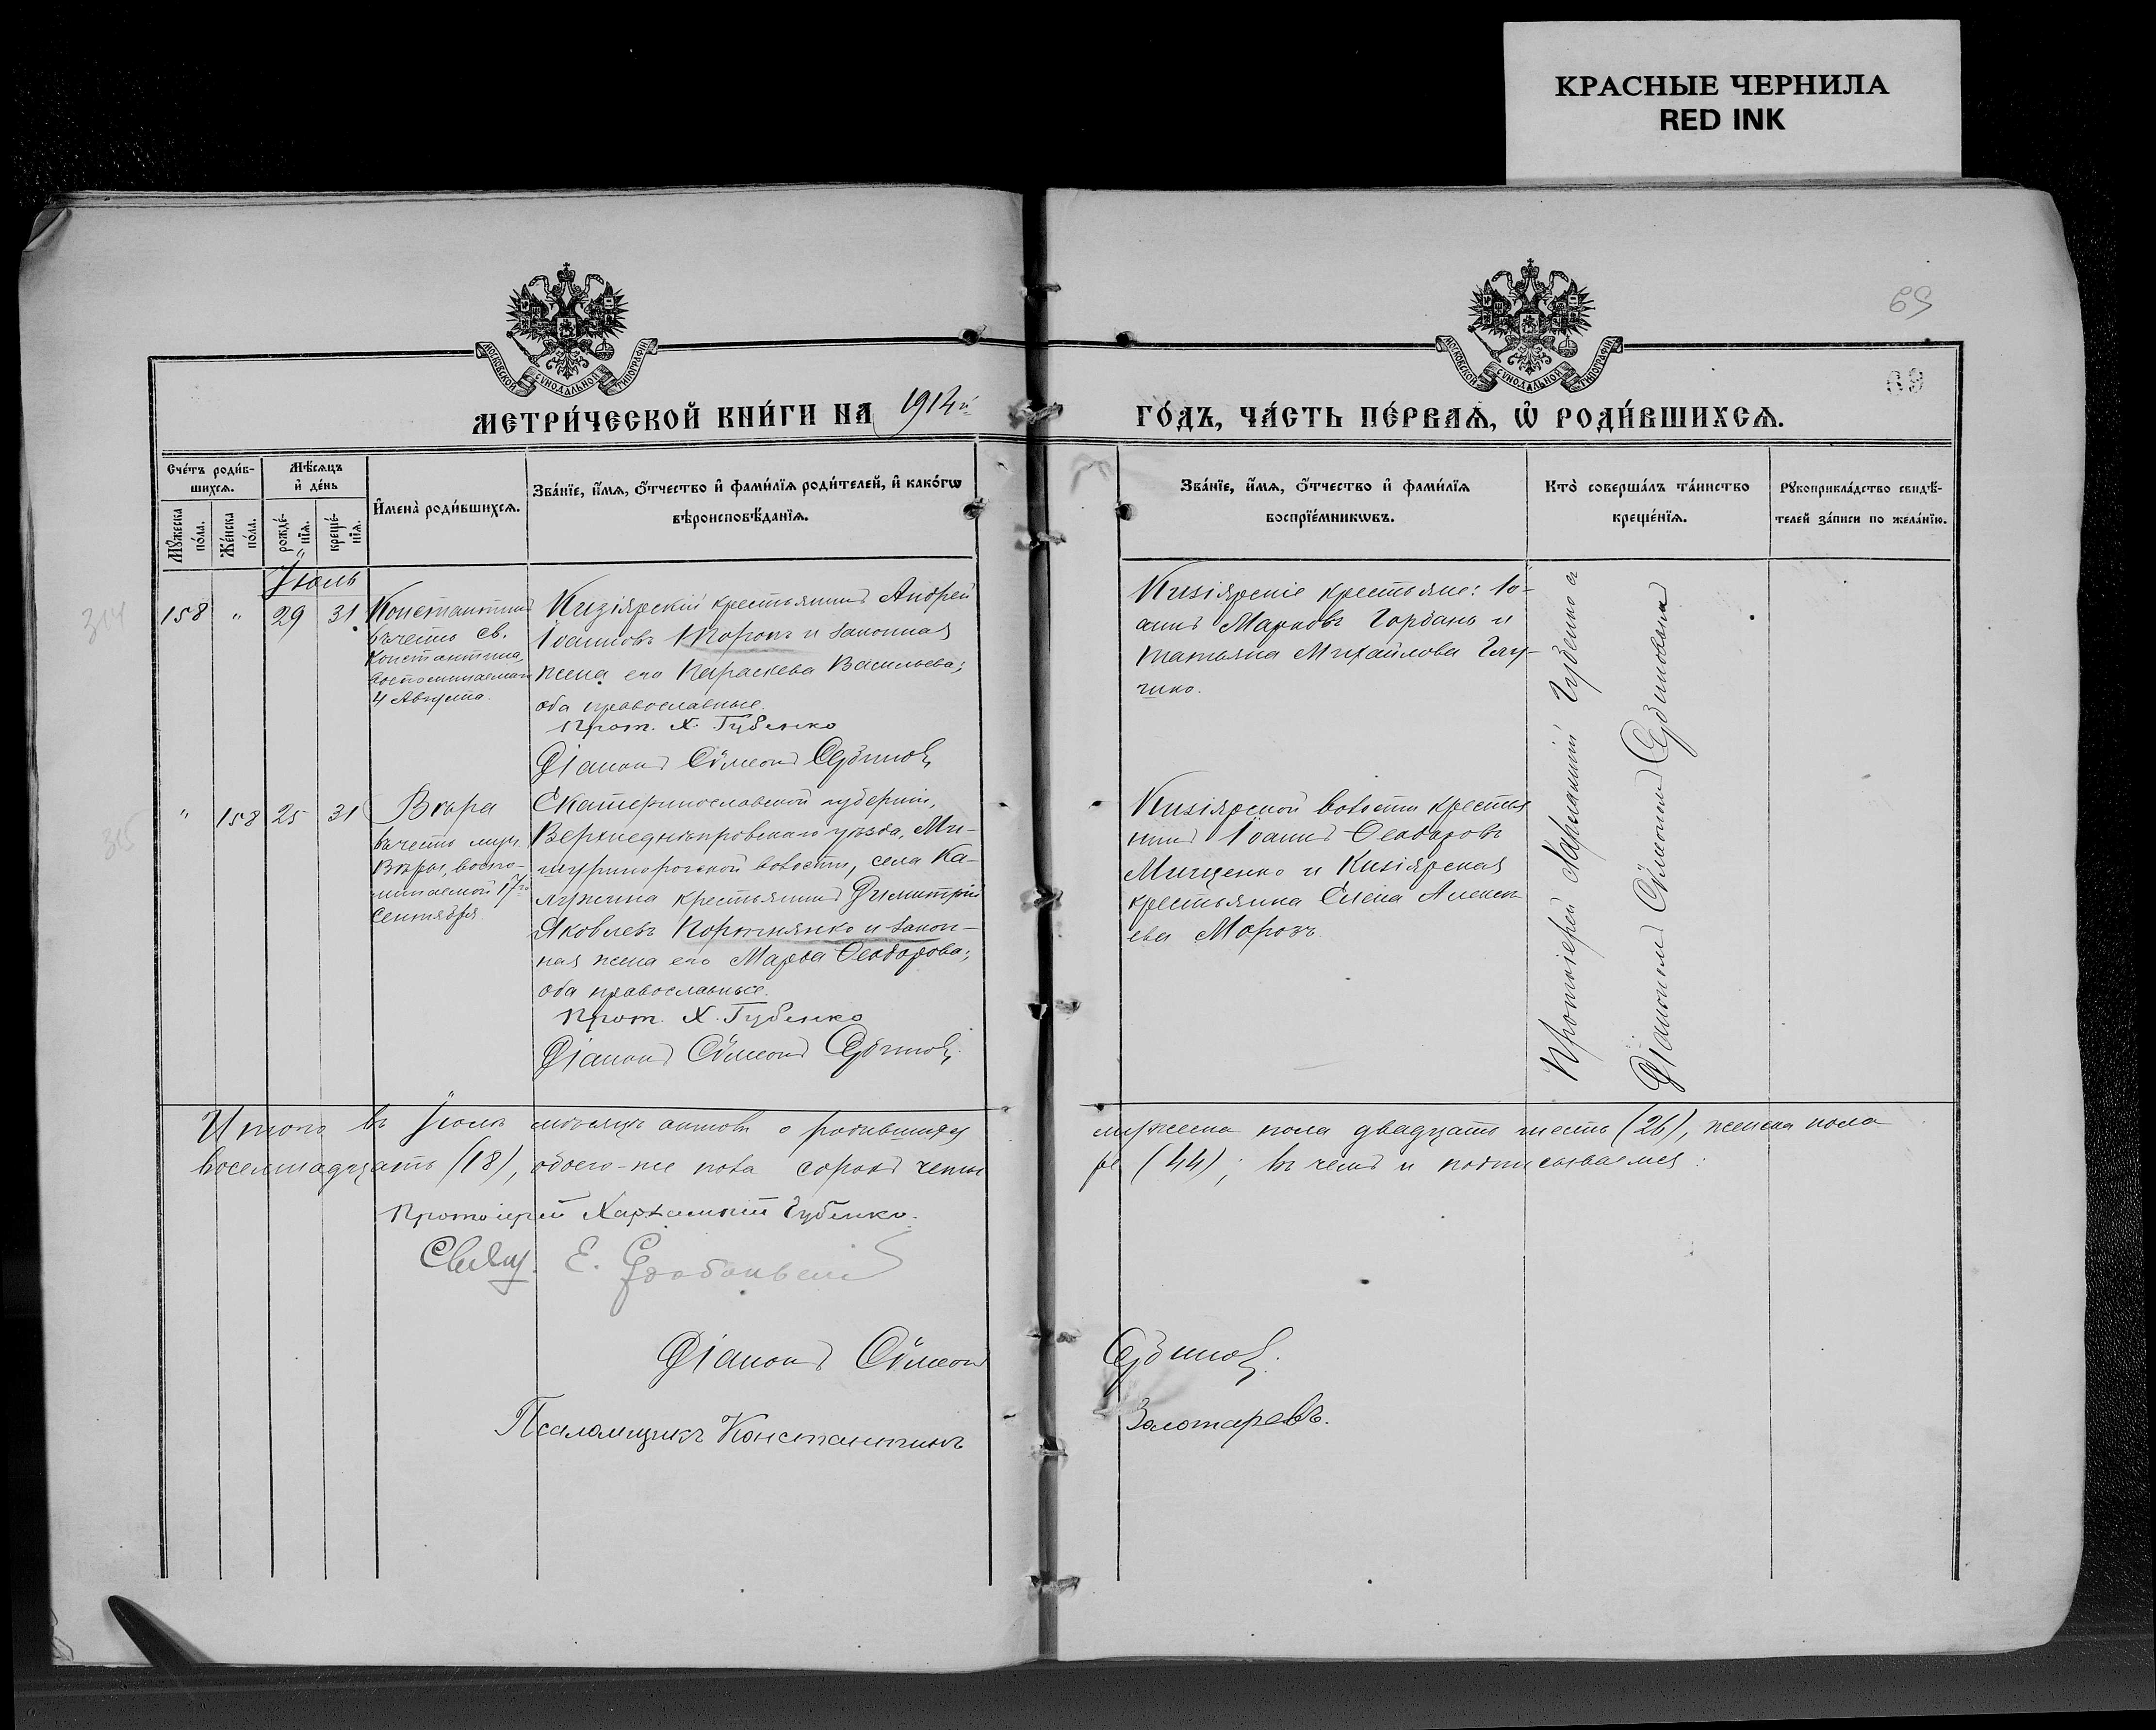 КРАСНЫЕ ЧЕРНИЛА
RED INK
69
69
МОСКОВСКОЙ СѴНОДАЛЬНОЙ ТИПОГРАФІИ
МОСКОВСКОЙ СѴНОДАЛЬНОЙ ТИПОГРАФІИ
МЕТРИ́ЧЕСКОЙ КНИ́ГИ НА 1914й
ГО́ДЪ, ЧА́СТЬ ПЕ́РВАѦ, Ѡ҆ РОДИ́ВШИХСѦ.
Сче́тъ роди́в-
шихсѧ.
Мꙋ́жеска по́ла.
Же́нска по́ла.
Мѣ́сѧцъ
и҆ де́нь
рожде́-
нїѧ.
креще́-
нїѧ.
И҆мена̀ роди́вшихсѧ.
Зва́нїе, и҆́мѧ, ѻ҆́тчество и҆ фами́лїѧ роди́телей, и҆ како́гѡ
вѣроисповѣ́данїѧ.
Зва́нїе, и҆́мѧ, ѻ҆́тчество и҆ фами́лїѧ
воспрїе́мникѡвъ.
Кто̀ соверша́лъ та́инство
креще́нїѧ.
Рꙋкоприкла́дство свидѣ́-
телей за́писи по жела́нїю.
Іюль
314
158 " 29 31
Константинъ
въ честь св.
Константина,
воспоминаемаго
4 Августа.
Кизіярскій крестьянинъ Андрей
Іоанновъ Морозъ и законная
жена его Параскева Васильева;
оба православные.
Прот. Х. Губенко
Діаконъ Сѵмеонъ
Кизіярскіе крестьяне: Іо-
аннъ Марковъ Горбань и
Татьяна Михайлова Глу-
щко.
Протоіерей Харлампій Губенко
Діаконъ Сѵмеонъ
315
" 158 25 31
Вѣра
въ честь муч.
Вѣры, воспо-
минаемой 17го
Сентября.
Екатеринославской губерніи,
Верхнеднѣпровскаго уѣзда, Ми-
шуринорогской волости, села Ка-
лужина крестьянинъ Димитрій
Яковлевъ Коржнянко и закон-
ная жена его Марѳа Ѳеодорова;
оба православные.
Прот. Х. Губенко
Діаконъ Сѵмеонъ
Кизіярской волости крестья
нинъ Іоаннъ Ѳеодоровъ
Мищенко и Кизіярская
крестьянка Елена Алексѣ
ева Морозъ.
Итого въ Іюлѣ мѣсяцѣ актовъ о родившихся
мужеска пола двадцать шесть (26), женска пола
восемнадцать (18), обоего-же пола сорокъ четы
ре (44); въ чемъ и подписываемся:
Протоіерей Харлампій Губенко.
Свящ. Е.
Діаконъ Сѵмеонъ
Псаломщикъ Константинъ
Золотаревъ.